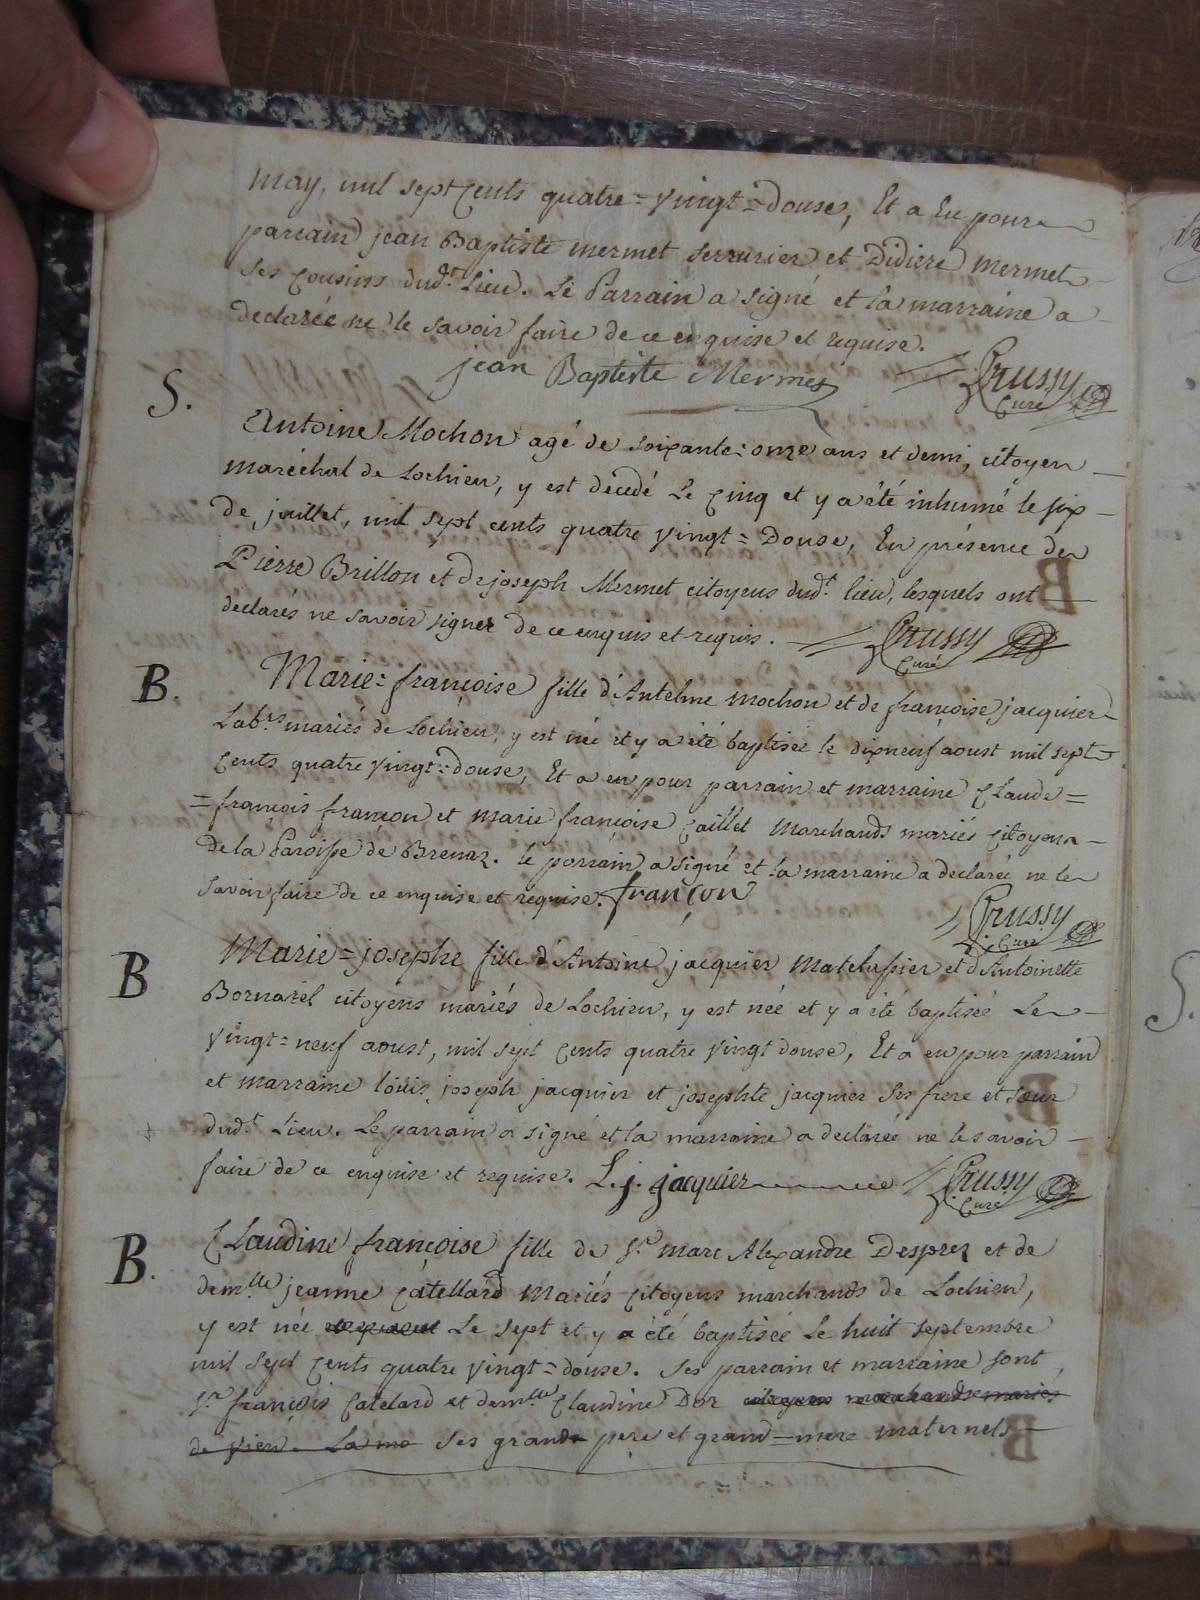 may, mil sept Cents quatre=vingt=douse, Et a Eu pour
parrain jean Baptiste mermet serrurier et Didiere mermet
Ses Cousins dud.t Lieu. Le Parrain a signé et la marraine a
declarée ne le savoir faire de ce enquise et requise.
jean Baptiste Mermet Crussy
Curé
S.
Antoine Mochon agé de soixante=onze ans et demi, citoyen
maréchal de Lochieu, y est décedé Le Cinq et y a été inhumé le six
de juillet, mil sept cents quatre vingt=Douse, En présence de
Pierre Brillon et de joseph Mermet citoyens dud.t lieu, lesquels ont
declarés ne savoir signer de ce enquis et requis. Crussy
Curé
B.
Marie=françoise fille d'Antelme mochon et de françoise jacquier
Lab.rs mariés de Lochieu, y est née et y a été baptisée le dixneuf aoust mil sept
Cents quatre vingt=douse, Et a eu pour parrain et marraine Claude=
=françois françon et marie françoise Caillet Marchands mariés Citoyens
de la Paroisse de Brenaz. le parrain a signé et la marraine a declarée ne le
savoir faire de ce enquise et requise. françon Crussy
Curé
B
Marie=josephe fille d'Antoine jacquier Matelassier et d'Antoinette
Bornarel citoyens mariés de Lochieu, y est née et y a été baptisée Le
Vingt=neuf aoust, mil sept Cents quatre vingt douse, Et a eu pour parrain
et marraine louis joseph jacquier et josephte jacquier ses frere et sœur
dud.t Lieu. Le parrain a signé et la marraine a declarée ne le savoir
faire de ce enquise et requise. L. j. jacquier Crussy
Curé
B.
Claudine françoise fille de S.r marc Alexandre Desprez et de
dem.lle jeanne Catellard Mariés Citoyens marchands de Lochieu,
y est née Le sept et y a été baptisée Le huit septembre
mil sept Cents quatre vingt=douse. Ses parrain et marraine sont
S.r françois Catelard et dem.lle Claudine Dor citoyens marchands mariés
de vieu. La ma ses grand pere et grand=mere maternels